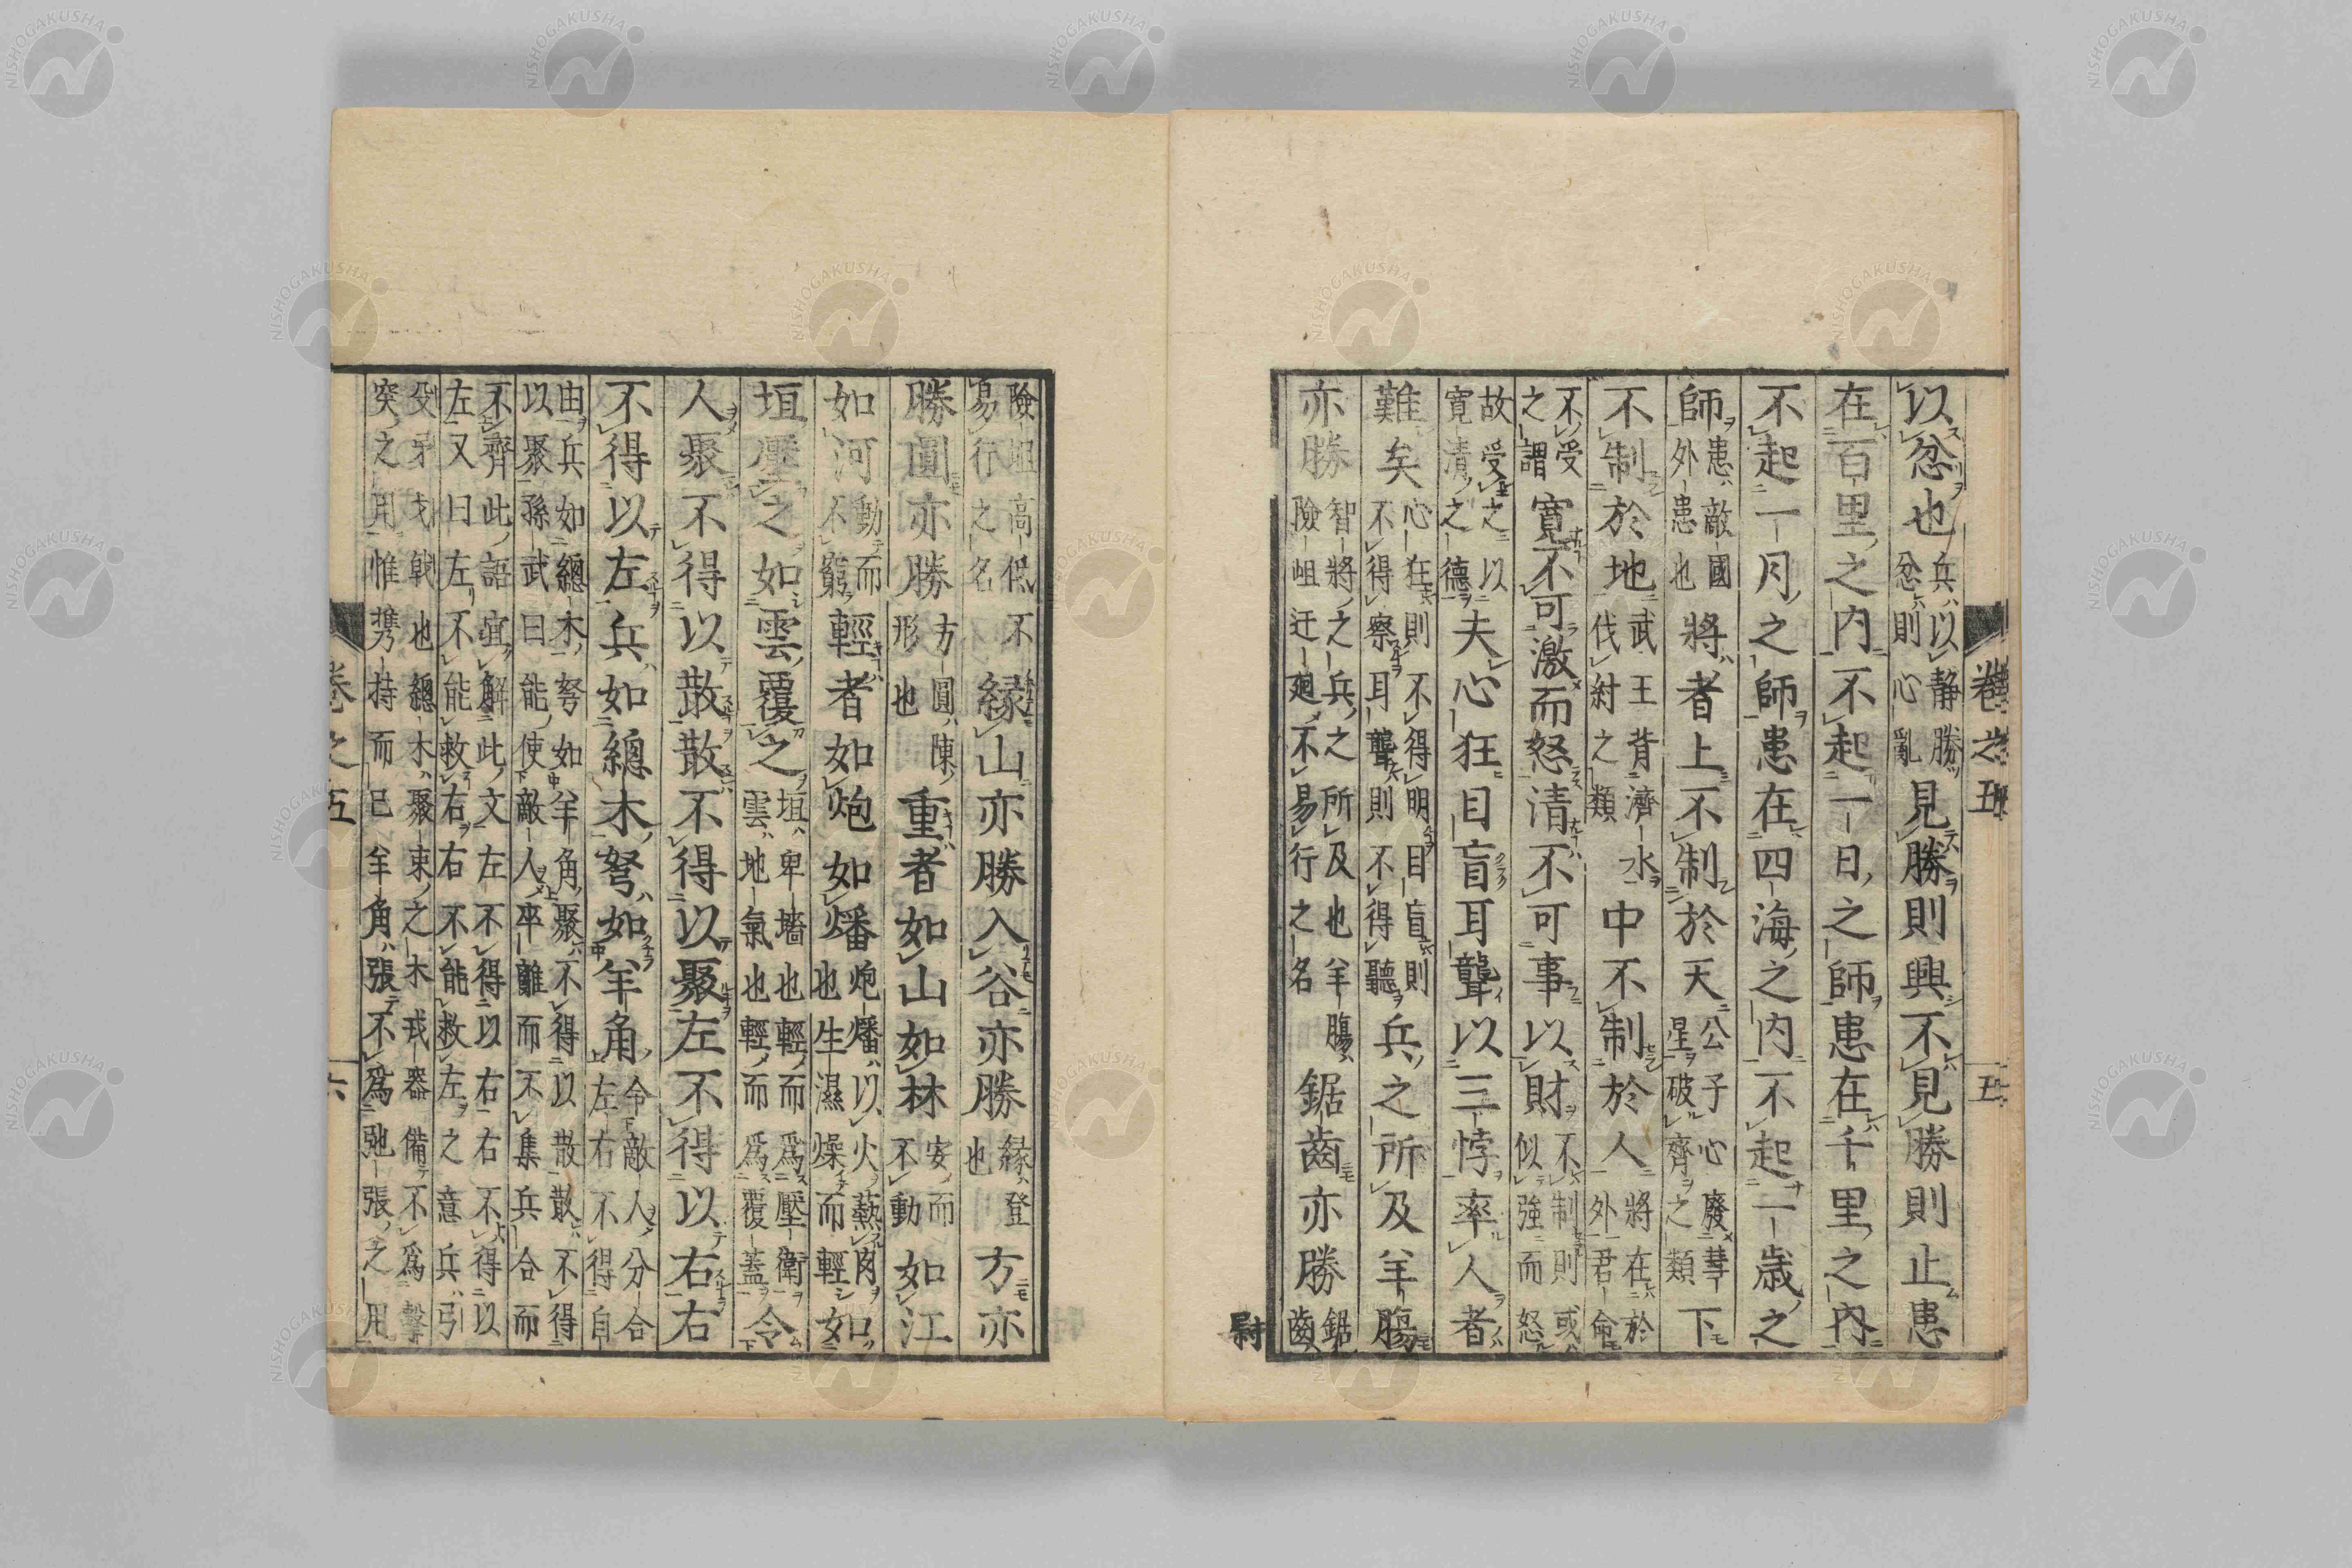 卷之五 五
以忿也兵以静勝忿則心亂見勝則興不見勝則止患
在百里之内不起一日之師患在千里之内
不起一月之師患在四海之内不起一歳之
師患敵國外患也將者上不制於天公子心廢彗星破齊之類下
不制於地武王背濟水伐紂之類中不制於人將在於外君命
不受之謂寛不可激而怒清不可事以財不制則或似強而怒
故受之以寛清之德夫心狂目盲耳聾以三悖率人者
難矣心狂則不得察耳聾則不得明目盲則不得聽兵之所及羊腸
亦勝智將之兵之所及也羊腸險岨迂廻不易行之名鋸齒亦勝鋸齒
尉
險岨高低不易行之名縁山亦勝入谷亦勝縁登也方亦
勝圓亦勝方圓陳形也重者如山如林安而不動如江
如河動而不窮輕者如炮如燔炮燔以火熱肉也生濕燥而輕如
垣壓之如雲覆之垣卑墻也輕而爲壓衛雲地氣也輕而爲覆蓋令
人聚不得以散散不得以聚左不得以右右
不得以左兵如總木弩如羊角令敵人分合左右不得自
由兵如總木弩如羊角聚不得以散散不得以聚孫武曰能使敵人卒離而不集兵合而
不齊此語宜解此文左不得以右右不得以左又曰左不能救右右不能救左之意兵引
殳牙戈戟也總木聚束之木戎器備不爲擊突之用惟携持而已羊角張不爲弛張之用
卷之五 六